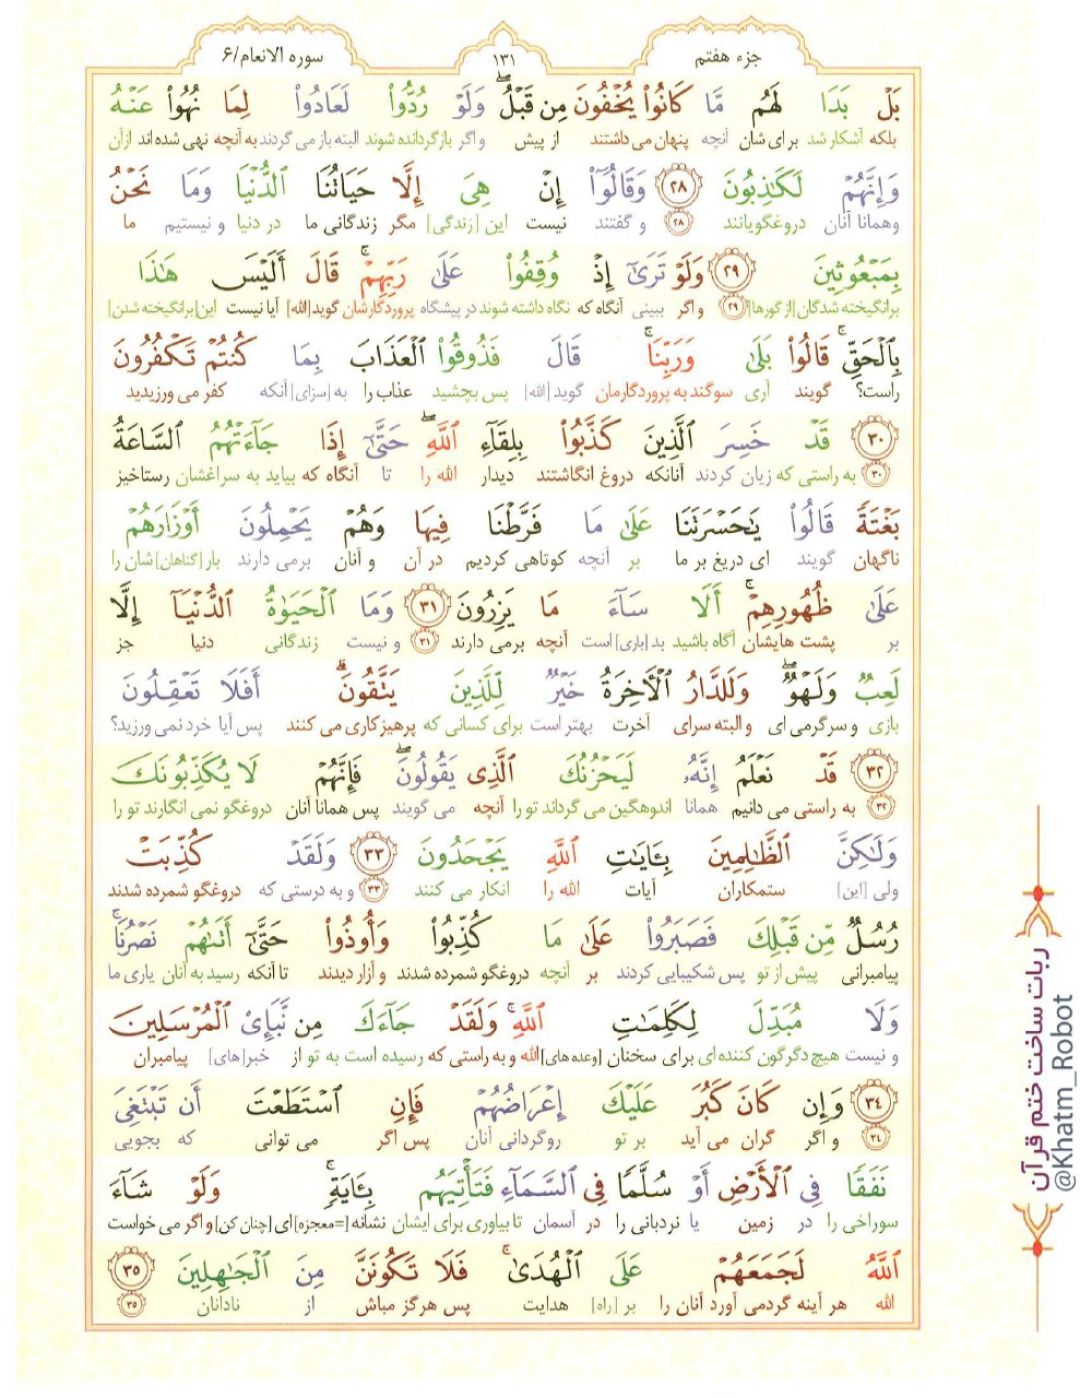 جزء هفتم
۱۳۱
سوره الانعام/۶
بَلْ بَدَا لَهُم مَّا كَانُوا۟ يُخْفُونَ مِن قَبْلُ ۖ وَلَوْ رُدُّوا۟ لَعَادُوا۟ لِمَا نُهُوا۟ عَنْهُ
بلکه آشکار شد برای شان آنچه پنهان می داشتند از پیش و اگر بازگردانده شوند البته باز می گردند به آنچه نهی شده اند از آن
وَإِنَّهُمْ لَكَٰذِبُونَ ۲۸ وَقَالُوٓا۟ إِنْ هِىَ إِلَّا حَيَاتُنَا ٱلدُّنْيَا وَمَا نَحْنُ
وهمانا آنان دروغگویانند ۲۸ و گفتند نیست این [زندگی] مگر زندگانی ما در دنیا و نیستیم ما
بِمَبْعُوثِينَ ۲۹ وَلَوْ تَرَىٰٓ إِذْ وُقِفُوا۟ عَلَىٰ رَبِّهِمْ ۚ قَالَ أَلَيْسَ هَٰذَا
برانگیخته شدگان [از گورها] ۲۹ و اگر ببینی آنگاه که نگاه داشته شوند در پیشگاه پروردگارشان گوید [الله] آیا نیست این [برانگیخته شدن]
بِٱلْحَقِّ ۚ قَالُوا۟ بَلَىٰ وَرَبِّنَا ۚ قَالَ فَذُوقُوا۟ ٱلْعَذَابَ بِمَا كُنتُمْ تَكْفُرُونَ
راست؟ گویند آری سوگند به پروردگارمان گوید [الله] پس بچشید عذاب را به [سزای] آنکه کفر می ورزیدید
۳۰ قَدْ خَسِرَ ٱلَّذِينَ كَذَّبُوا۟ بِلِقَآءِ ٱللَّهِ ۖ حَتَّىٰٓ إِذَا جَآءَتْهُمُ ٱلسَّاعَةُ
۳۰ به راستی که زیان کردند آنانکه دروغ انگاشتند دیدار الله را تا آنگاه که بیاید به سراغشان رستاخیز
بَغْتَةً قَالُوا۟ يَٰحَسْرَتَنَا عَلَىٰ مَا فَرَّطْنَا فِيهَا وَهُمْ يَحْمِلُونَ أَوْزَارَهُمْ
ناگهان گویند ای دریغ بر ما بر آنچه کوتاهی کردیم در آن و آنان برمی دارند بار [گناهان] شان را
عَلَىٰ ظُهُورِهِمْ ۚ أَلَا سَآءَ مَا يَزِرُونَ ۳۱ وَمَا ٱلْحَيَوٰةُ ٱلدُّنْيَآ إِلَّا
بر پشت هایشان آگاه باشید بد [باری] است آنچه برمی دارند ۳۱ و نیست زندگانی دنیا جز
لَعِبٌ وَلَهْوٌ ۖ وَلَلدَّارُ ٱلْأَخِرَةُ خَيْرٌ لِّلَّذِينَ يَتَّقُونَ ۗ أَفَلَا تَعْقِلُونَ
بازی و سرگرمی ای و البته سرای آخرت بهتر است برای کسانی که پرهیزکاری می کنند پس آیا خرد نمی ورزید؟
۳۲ قَدْ نَعْلَمُ إِنَّهُۥ لَيَحْزُنُكَ ٱلَّذِى يَقُولُونَ ۖ فَإِنَّهُمْ لَا يُكَذِّبُونَكَ
۳۲ به راستی می دانیم همانا اندوهگین می گرداند تو را آنچه می گویند پس همانا آنان دروغگو نمی انگارند تو را
وَلَٰكِنَّ ٱلظَّٰلِمِينَ بِـَٔايَٰتِ ٱللَّهِ يَجْحَدُونَ ۳۳ وَلَقَدْ كُذِّبَتْ
ولی [این] ستمکاران آیات الله را انکار می کنند ۳۳ و به درستی که دروغگو شمرده شدند
رُسُلٌ مِّن قَبْلِكَ فَصَبَرُوا۟ عَلَىٰ مَا كُذِّبُوا۟ وَأُوذُوا۟ حَتَّىٰٓ أَتَىٰهُمْ نَصْرُنَا ۚ
پیامبرانی پیش از تو پس شکیبایی کردند بر آنچه دروغگو شمرده شدند و آزار دیدند تا آنکه رسید به آنان یاری ما
وَلَا مُبَدِّلَ لِكَلِمَٰتِ ٱللَّهِ ۚ وَلَقَدْ جَآءَكَ مِن نَّبَإِى۟ ٱلْمُرْسَلِينَ
و نیست هیچ دگرگون کننده ای برای سخنان [وعده های] الله و به راستی که رسیده است به تو از خبر [های] پیامبران
۳۴ وَإِن كَانَ كَبُرَ عَلَيْكَ إِعْرَاضُهُمْ فَإِنِ ٱسْتَطَعْتَ أَن تَبْتَغِىَ
۳۴ و اگر گران می آید بر تو روگردانی آنان پس اگر می توانی که بجویی
نَفَقًا فِى ٱلْأَرْضِ أَوْ سُلَّمًا فِى ٱلسَّمَآءِ فَتَأْتِيَهُم بِـَٔايَةٍ ۚ وَلَوْ شَآءَ
سوراخی را در زمین یا نردبانی را در آسمان تا بیاوری برای ایشان نشانه [=معجزه] ای [چنان کن] و اگر می خواست
ٱللَّهُ لَجَمَعَهُمْ عَلَى ٱلْهُدَىٰ ۚ فَلَا تَكُونَنَّ مِنَ ٱلْجَٰهِلِينَ ۳۵
الله هر آینه گردمی آورد آنان را بر [راه] هدایت پس هرگز مباش از نادانان ۳۵
ربات ساخت ختم قرآن
@Khatm_Robot